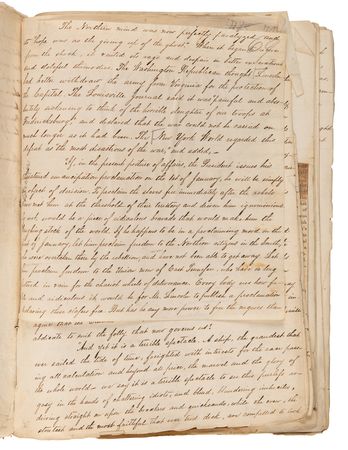 The Northern mind was now perfectly paralyzed, and
to hope was as the giving up of the ghost. When it began
from the shock, it vented its rage and despair in bitter
and doleful themodies. The Washington Republican thought Lincoln
had better withdraw the army from Virginia for the protection of
the Capitol. The Louisville Journal said it was "painful and abso-
lutely sickening to think of the horrible slaughter of our troops at
Fredericksburg," and declared that the war could not be carried on
much longer as it had been. The New York World regarded this
defeat as the most disastrous of the war, and added,
"If, in the present posture of affairs, the President issues his
emancipation proclamation on the 1st of January, he will be simply
an object of derision. To proclaim the slaves free immediately after the rebels
have met him at the threshold of this territory and driven him ignominiously
back, would be a piece of ridiculous bravado that would make him the
laughing stock of the world. If he happens to be in a proclaiming mood on the
1st of January, let him proclaim freedom to the Northern citizens in the
overtaken them by the election, and have not been able to get away. Let
him proclaim freedom to the Union men of East Tennessee, who have so long
looked in vain for the chariot wheels of deliverance. Every body see how
and ridiculous it would be for Mr. Lincoln to publish a proclamation
declaring these classes free. But has he any more power to free the negroes than
adequate to meet the folly that now governs us!
And yet it is a terrible spectacle. A ship, the grandest that
ever sailed the tide of time, freighted with interests for the race pass-
ing all calculation and beyond all price, the marvel and the glory of
the whole world — we say it is a terrible spectacle to see this peerless ar-
gosy in the hands of chattering idiots, and blind, blundering imbeciles,
driving straight on upon the breakers and quicksands, while the crew, the
stoutest and the most faithful that ever trod deck, are compelled to look